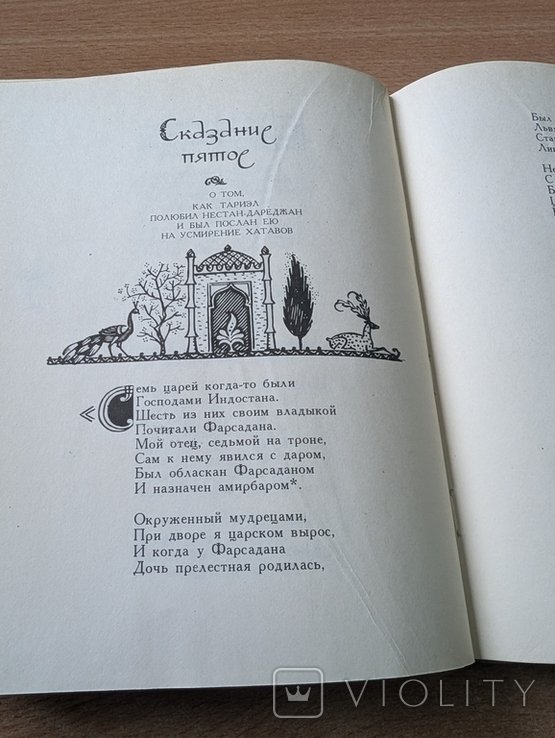 Сказание
пятое
О ТОМ,
КАК ТАРИЭЛ
ПОЛЮБИЛ НЕСТАН-ДАРЕДЖАН
И БЫЛ ПОСЛАН ЕЮ
НА УСМИРЕНИЕ ХАТАВОВ
«Семь царей когда-то были
Господами Индостана.
Шесть из них своим владыкой
Почитали Фарсадана.
Мой отец, седьмой на троне,
Сам к нему явился с даром,
Был обласкан Фарсаданом
И назначен амирбаром*.
Окруженный мудрецами,
При дворе я царском вырос,
И когда у Фарсадана
Дочь прелестная родилась,
Был
VIOLITY